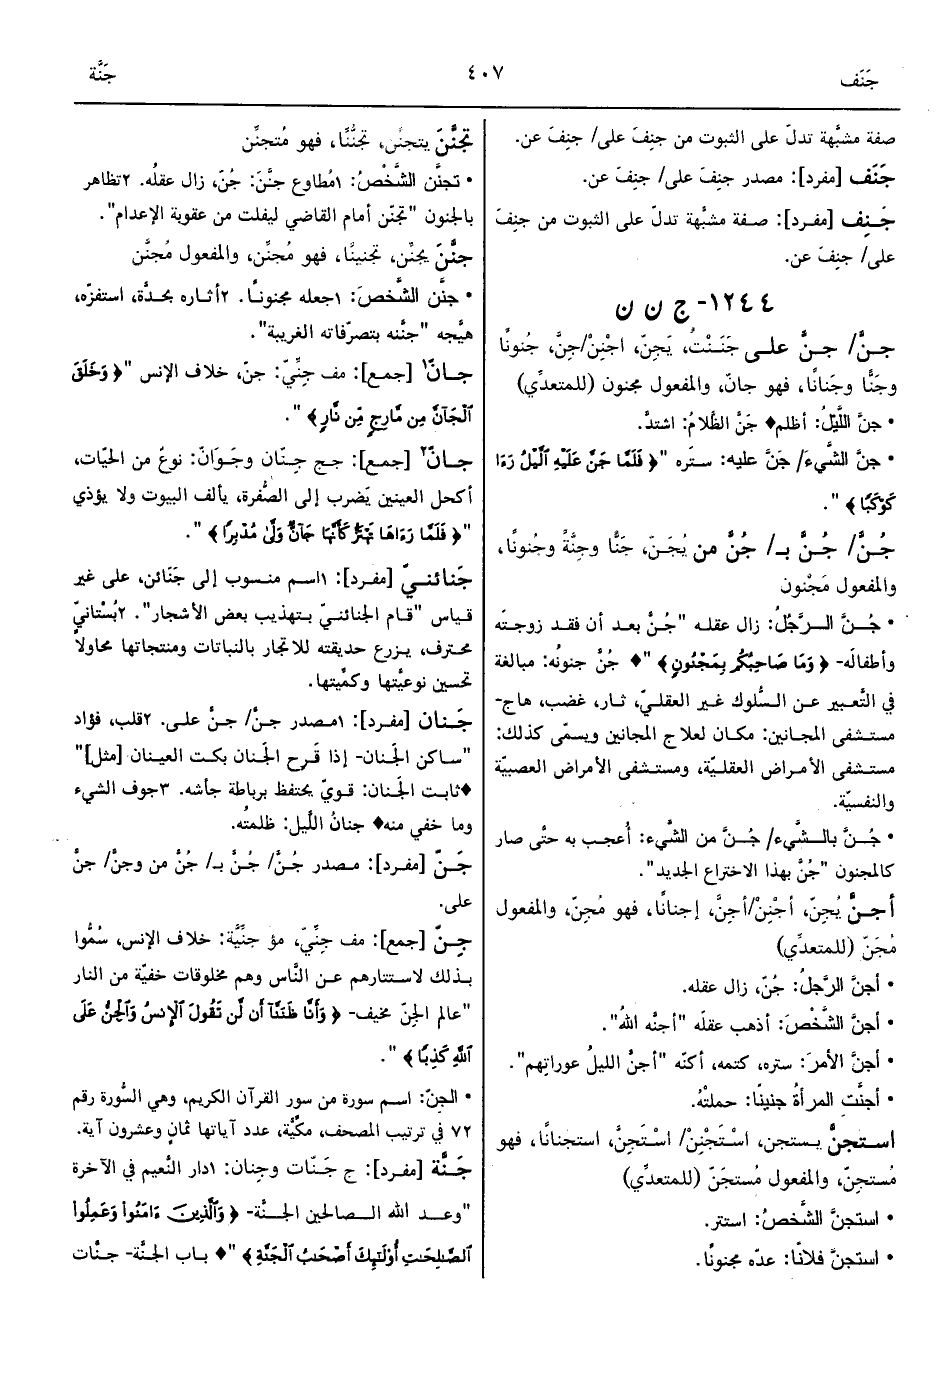 جَنَف
٤٠٧
جَنَّة
صفة مشبَّهة تدلّ على الثبوت من جنِفَ على/ جنِفَ عن.
جَنَف [مفرد]: مصدر جنِفَ على/ جنِفَ عن.
جَنِف [مفرد]: صفة مشبَّهة تدلّ على الثبوت من جنِفَ
على/ جنِفَ عن.
١٢٤٤- ج ن ن
جنَّ/ جنَّ على جَنَنْتُ، يَجِنّ، اجْنِنْ/جِنَّ، جُنونًا
وجَنًّا وجَنانًا، فهو جانّ، والمفعول مجنون (للمتعدِّي)
• جنَّ اللَّيلُ: أظلم♦ جَنَّ الظَّلامُ: اشتدَّ.
• جنَّ الشَّيءَ/ جَنَّ عليه: ستَره "﴿ فَلَمَّا جَنَّ عَلَيْهِ ٱلَّيْلُ رَءَا
كَوْكَبًا ﴾ ".
جُنَّ/ جُنَّ بـ/ جُنَّ من يُجَنّ، جَنًّا وجِنَّةً وجُنونًا،
والمفعول مَجْنون
• جُنَّ الرَّجُلُ: زال عقله "جُنَّ بعد أن فقد زوجتَه
وأطفالَه- ﴿ وَمَا صَاحِبُكُم بِمَجْنُونٍ ﴾ "♦ جُنَّ جنونُه: مبالغة
في التَّعبير عن السُّلوك غير العقليّ، ثار، غضب، هاج-
مستشفى المجانين: مكان لعلاج المجانين ويسمّى كذلك:
مستشفى الأمراض العقليّة، ومستشفى الأمراض العصبيّة
والنفسيّة.
• جُنَّ بالشَّيء/ جُنَّ من الشَّيء: أُعجب به حتَّى صار
كالمجنون "جُنَّ بهذا الاختراع الجديد".
أجنَّ يُجِنّ، أجْنِنْ/أجِنَّ، إجنانًا، فهو مُجِنّ، والمفعول
مُجَنّ (للمتعدِّي)
• أجنَّ الرَّجلُ: جُنّ، زال عقله.
• أجنَّ الشَّخْصَ: أذهب عقلَه "أجنَّه اللهُ".
• أجنَّ الأمرَ: ستره، كتمه، أكنّه "أجنَّ الليلُ عوراتِهم".
• أجنَّت المرأةُ جنينًا: حملتْهُ.
استجنَّ يستجن، اسْتَجْنِنْ/ اسْتَجِنَّ، استجنانًا، فهو
مُستجِنّ، والمفعول مُستجَنّ (للمتعدِّي)
• استجنَّ الشَّخصُ: استتر.
• استجنَّ فلانًا: عدّه مجنونًا.
تجنَّنَ يتجنَّن، تجنُّنًا، فهو مُتجنِّن
• تجنَّن الشَّخْصُ: ١مُطاوع جنَّنَ: جُنّ، زال عقله. ٢تظاهر
بالجنون "تجنّن أمام القاضي ليفلت من عقوبة الإعدام".
جنَّنَ يجنِّن، تجنينًا، فهو مُجنِّن، والمفعول مُجنَّن
• جنَّن الشَّخصَ: ١جعله مجنونًا. ٢أثاره بحدَّة، استفزّه،
هيَّجه "جنَّنه بتصرّفاته الغريبة".
جانّ١ [جمع]: مف جنِّيّ: جنّ، خلاف الإنس "﴿ وَخَلَقَ
ٱلْجَآنَّ مِن مَّارِجٍ مِّن نَّارٍ ﴾ ".
جانّ٢ [جمع]: جج جِنّان وجَوَانّ: نوعٌ من الحيّات،
أكحل العينين يَضرب إلى الصُّفرة، يألف البيوت ولا يؤذي
"﴿ فَلَمَّا رَءَاهَا تَهْتَزُّ كَأَنَّهَا جَآنٌّ وَلَّى مُدْبِرًا ﴾ ".
جَنائنيّ [مفرد]: ١اسم منسوب إلى جَنَائن، على غير
قياس "قام الجنائنيّ بتهذيب بعض الأشجار". ٢بُسْتانيّ
محترف، يزرع حديقته للاتجار بالنباتات ومنتجاتها محاولاً
تحسين نوعيَّتها وكمِّيتها.
جَنان [مفرد]: ١مصدر جنَّ/ جنَّ على. ٢قلب، فؤاد
"ساكن الجنان- إذا قَرح الجنان بكت العينان [مثل]"
♦ثابت الجَنان: قويّ يحتفظ برباطة جأشه. ٣جوف الشيء
وما خفي منه♦ جنانُ اللَّيل: ظلمتُه.
جَنّ [مفرد]: مصدر جُنَّ/ جُنَّ بـ/ جُنَّ من وجنَّ/ جنَّ
على.
جِنّ [جمع]: مف جنِّيّ، مؤ جنِّيَّة: خلاف الإنس، سُمُّوا
بذلك لاستتارهم عن النَّاس وهم مخلوقات خفيّة من النار
"عالم الجنّ مخيف- ﴿ وَأَنَّا ظَنَنَّآ أَن لَّن تَقُولَ ٱلْإِنسُ وَٱلْجِنُّ عَلَى
ٱللَّهِ كَذِبًا ﴾ ".
• الجنّ: اسم سورة من سور القرآن الكريم، وهي السُّورة رقم
٧٢ في ترتيب المصحف، مكّيَّة، عدد آياتها ثمانٍ وعشرون آية.
جَنَّة [مفرد]: ج جَنّات وجِنان: ١دار النَّعيم في الآخرة
"وعد الله الصالحين الجنَّة- ﴿ وَٱلَّذِينَ ءَامَنُوا۟ وَعَمِلُوا۟
ٱلصَّٰلِحَٰتِ أُو۟لَٰٓئِكَ أَصْحَٰبُ ٱلْجَنَّةِ ﴾ "♦ باب الجنَّة- جنَّات